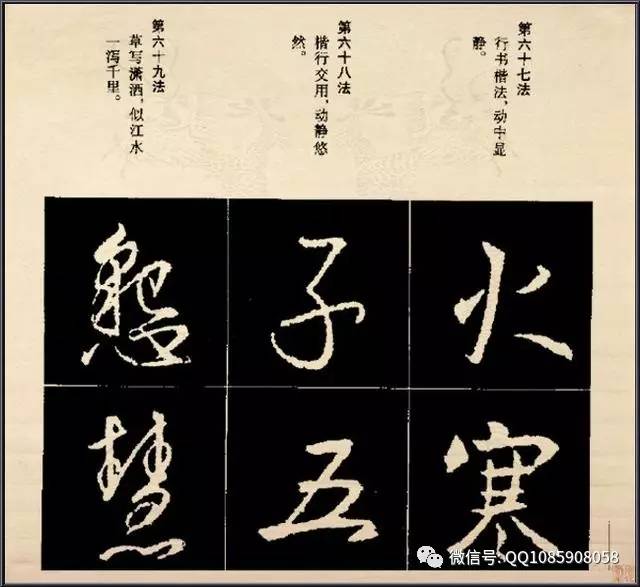 第六十七法
行书楷法,动中显
静。
火
寒
第六十八法
楷行交用,动静悠
然。
子
五
第六十九法
草写潇洒,似江水
一泻千里。
慧
微信号: QQ1085908058